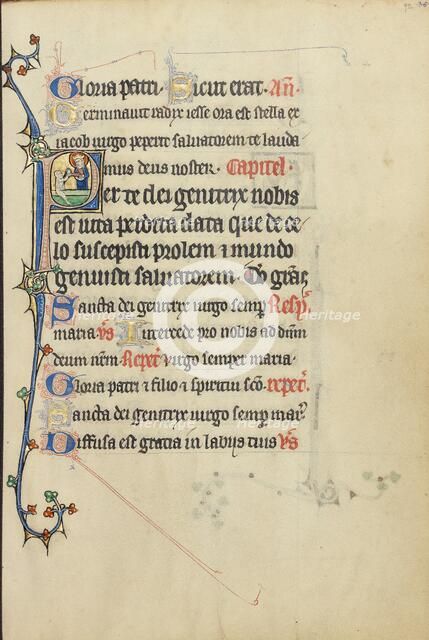 92
Gloria patri. Sicut erat. An̄.
Germinavit radix iesse ora est stella ex
iacob virgo peperit salvatorem te lauda
mus deus noster. Capitel.
Per te dei genitryx nobis
est vita perdita data que de ce
lo suscepisti prolem ⁊ mundo
genuisti salvatorem. Do grās
Sancta dei genitryx virgo semp̄ Resp̄.
maria. vs Intercede pro nobis ad dn̄m
deum nr̄m. Reper̄. virgo semper maria.
Gloria patri ⁊ filio ⁊ spiritui sc̄o. reper̄.
Sancta dei genitryx virgo semp̄ mar̄.
Diffusa est gracia in labijs tuis vs
heritage
Heritage
Heritage
Heritage
Images
Images
Images